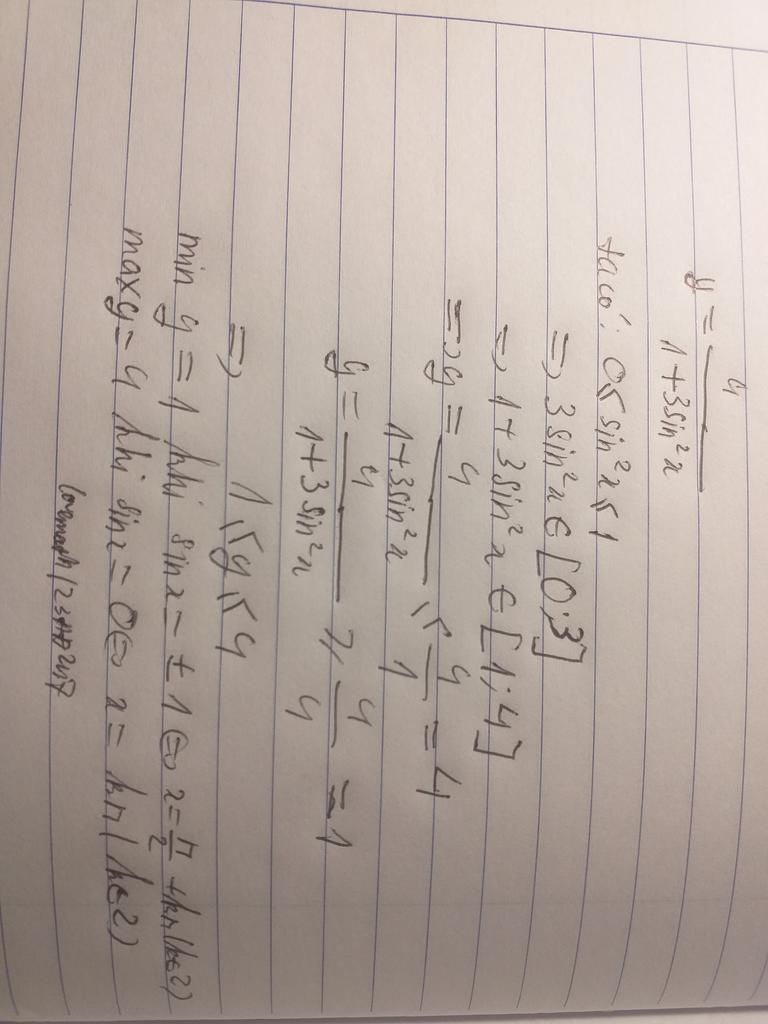 y = 4 / (1+3sin²x)
ta có: 0 ≤ sin²x ≤ 1
=> 3sin²x ∈ [0;3]
=> 1+3sin²x ∈ [1;4]
=> y = 4 / (1+3sin²x) ≤ 4/1 = 4
y = 4 / (1+3sin²x) ≥ 4/4 = 1
=> 1 ≤ y ≤ 4
min y = 1 khi sinx = ±1 ⇔ x = π/2 + kπ (k∈Z)
max y = 4 khi sinx = 0 ⇔ x = kπ (k∈Z)